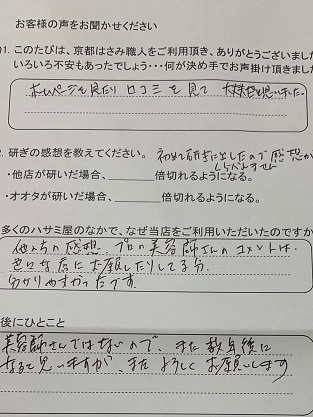 お客様の声をお聞かせください
1. このたびは、京都はさみ職人をご利用頂き、ありがとうございまし
いろいろ不安もあったでしょう・・・何が決め手でお声掛け頂きまし
ホームページを見たり 口コミを見て 大丈夫と思いました。
研ぎの感想を教えてください。 初めて研ぎに出したので感想が
くらべれません
・他店が研いだ場合、 倍切れるようになる。
・オオタが研いだ場合、 倍切れるようになる。
多くのハサミ屋のなかで、なぜ当店をご利用いただいたのですか
他の方の感想 プロの美容師さんのコメントは、
色いな店にお願いしたりしてる分、
分かりやすかったです。
後にひとこと
美容師さんではないので、また数年後に
なると思いますが、またよろしくお願いします